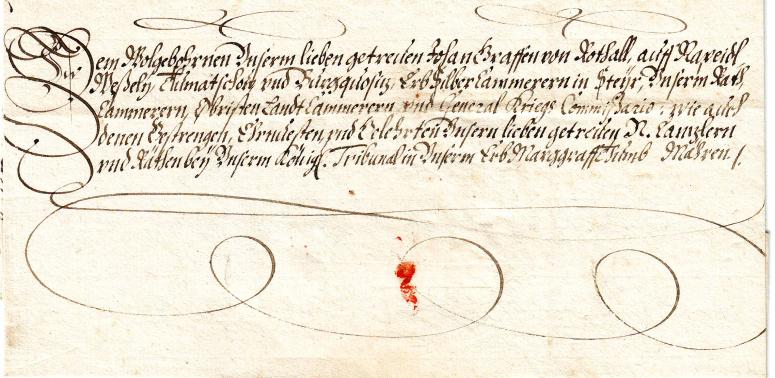 Dem Wolgebohrnen Unserm lieben getreüen Johan Graffen von Rothall, auff Napeidl
Weßely, Tulmatschov und Singquositz, ErbSilberCammerern in Steyr, Unserm Rath,
Cammerern, Obristen Landt Cammerern und General Kriegs Commissario, wie auch
denen Gestrengen, Ehrnvesten und Gelehrten Unsern lieben getreüen N. Canzlern
und Räthen beÿ Unserm Königl. Tribunal in Unserm Erb Marggraffthumb Mähren /.